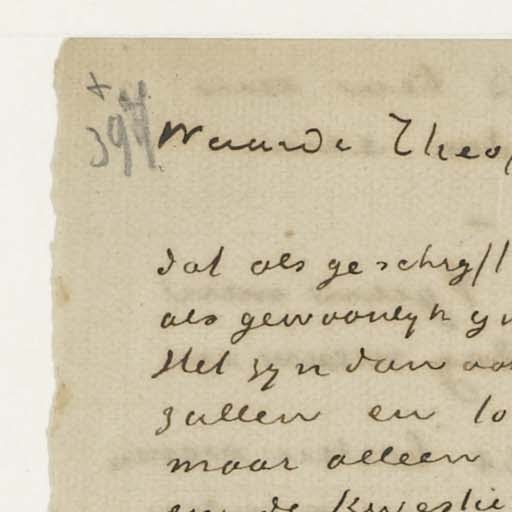 +
394
Waarde Theo,
dat als geschryf
als gewoonlyk
Het zyn dan
zullen en
maar alleen
en de kwestie